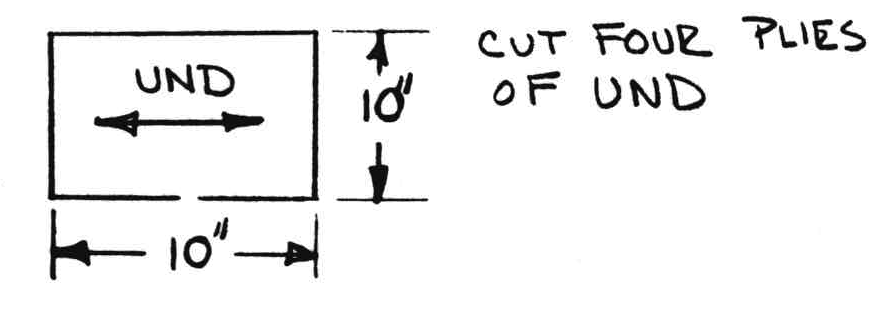 UND
10"
10"
CUT FOUR PLIES
OF UND